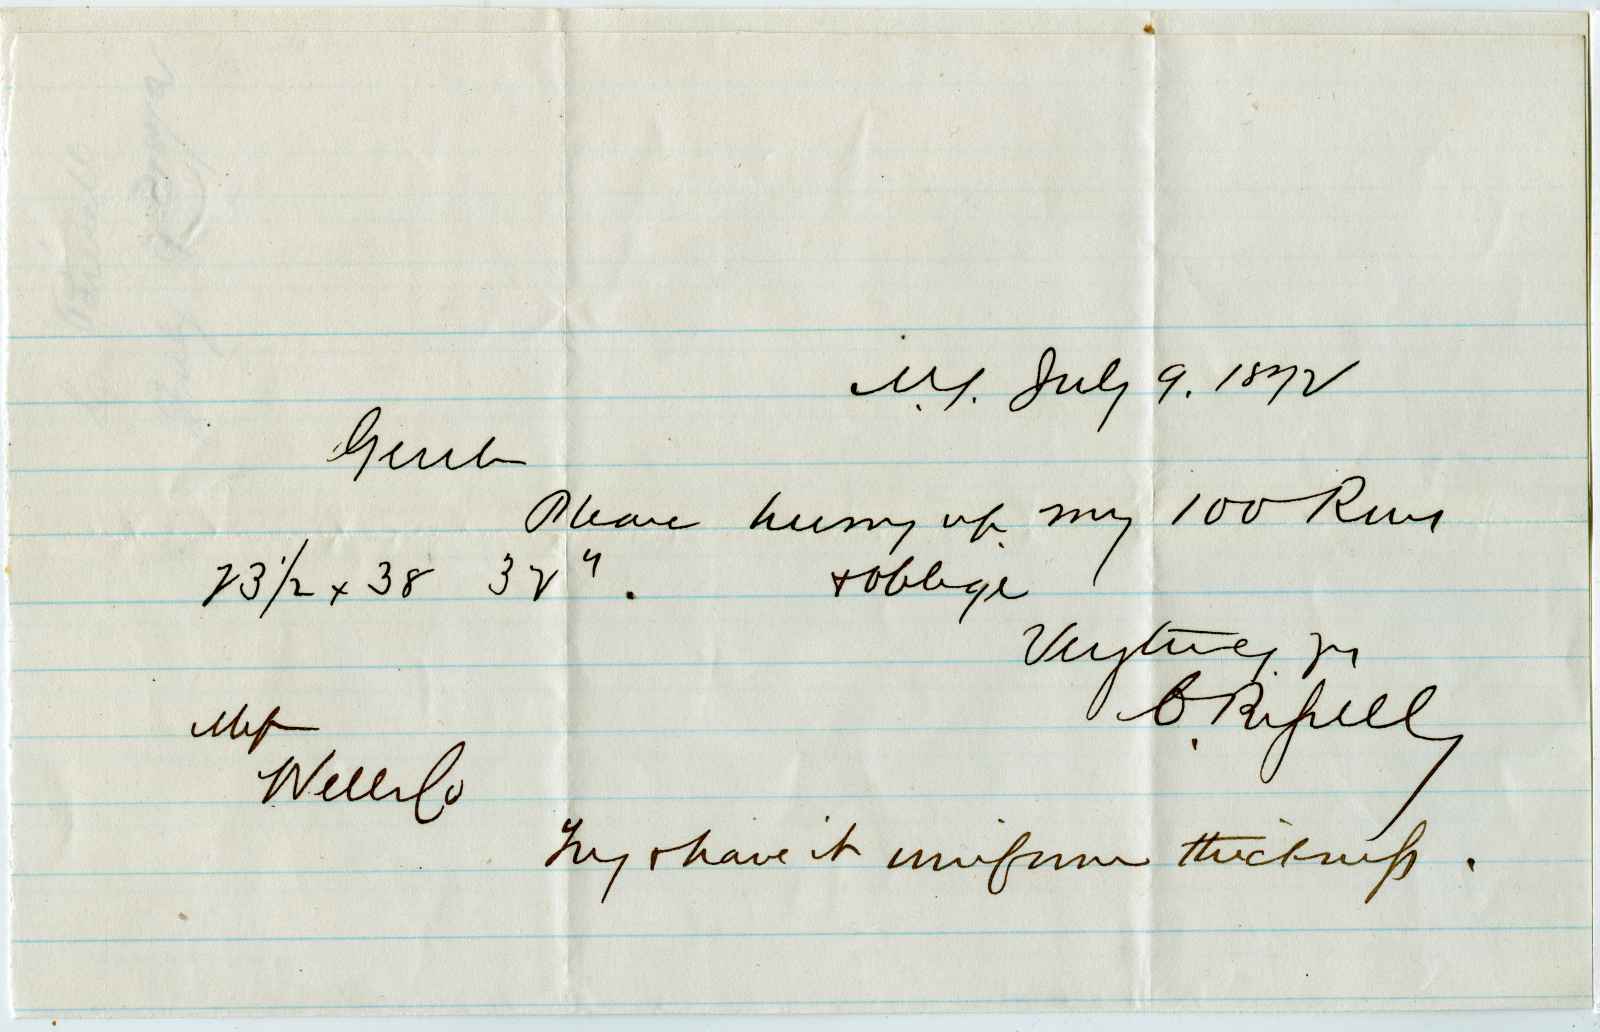 N.Y. July 9. 1872
Gents
Please hurry up my 100 Rms
23 1/2 x 38 32". & oblige
Very truly yrs
C. Rissell
Mess
Wells Co
Try & have it uniform thickness.